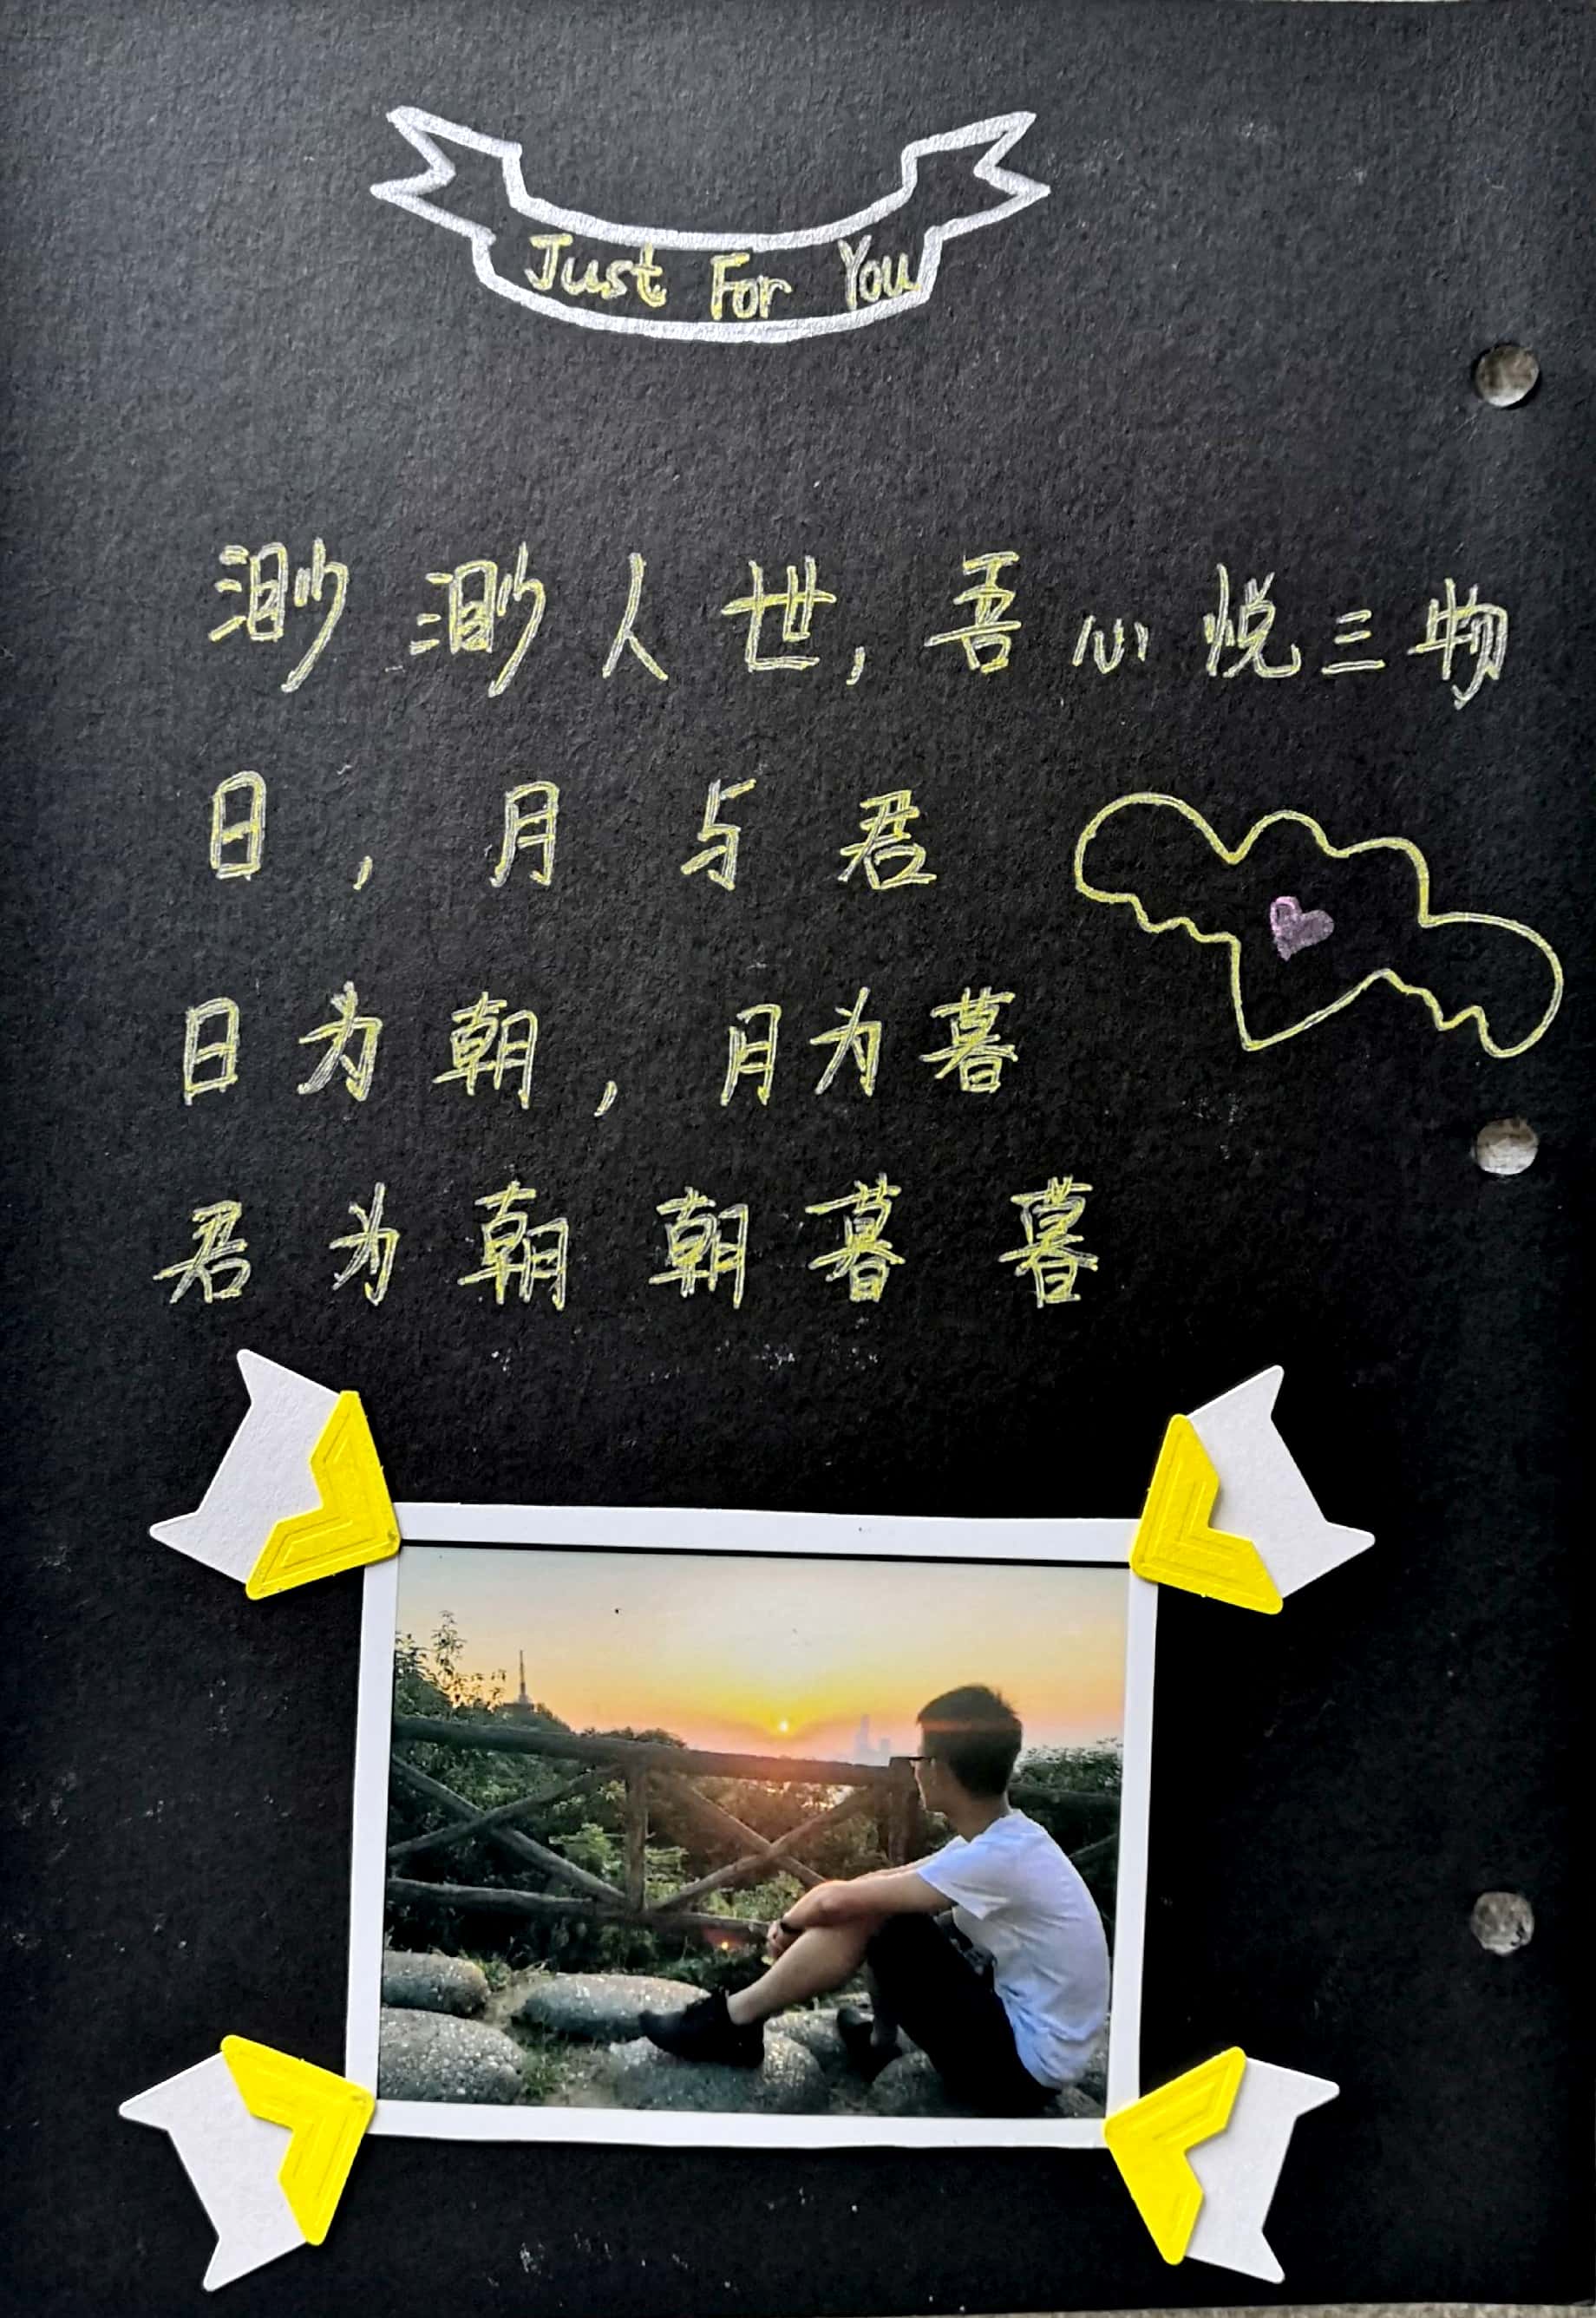 Just For You
渺渺人世,吾心悦三物
日,月与君
日为朝,月为暮
君为朝朝暮暮